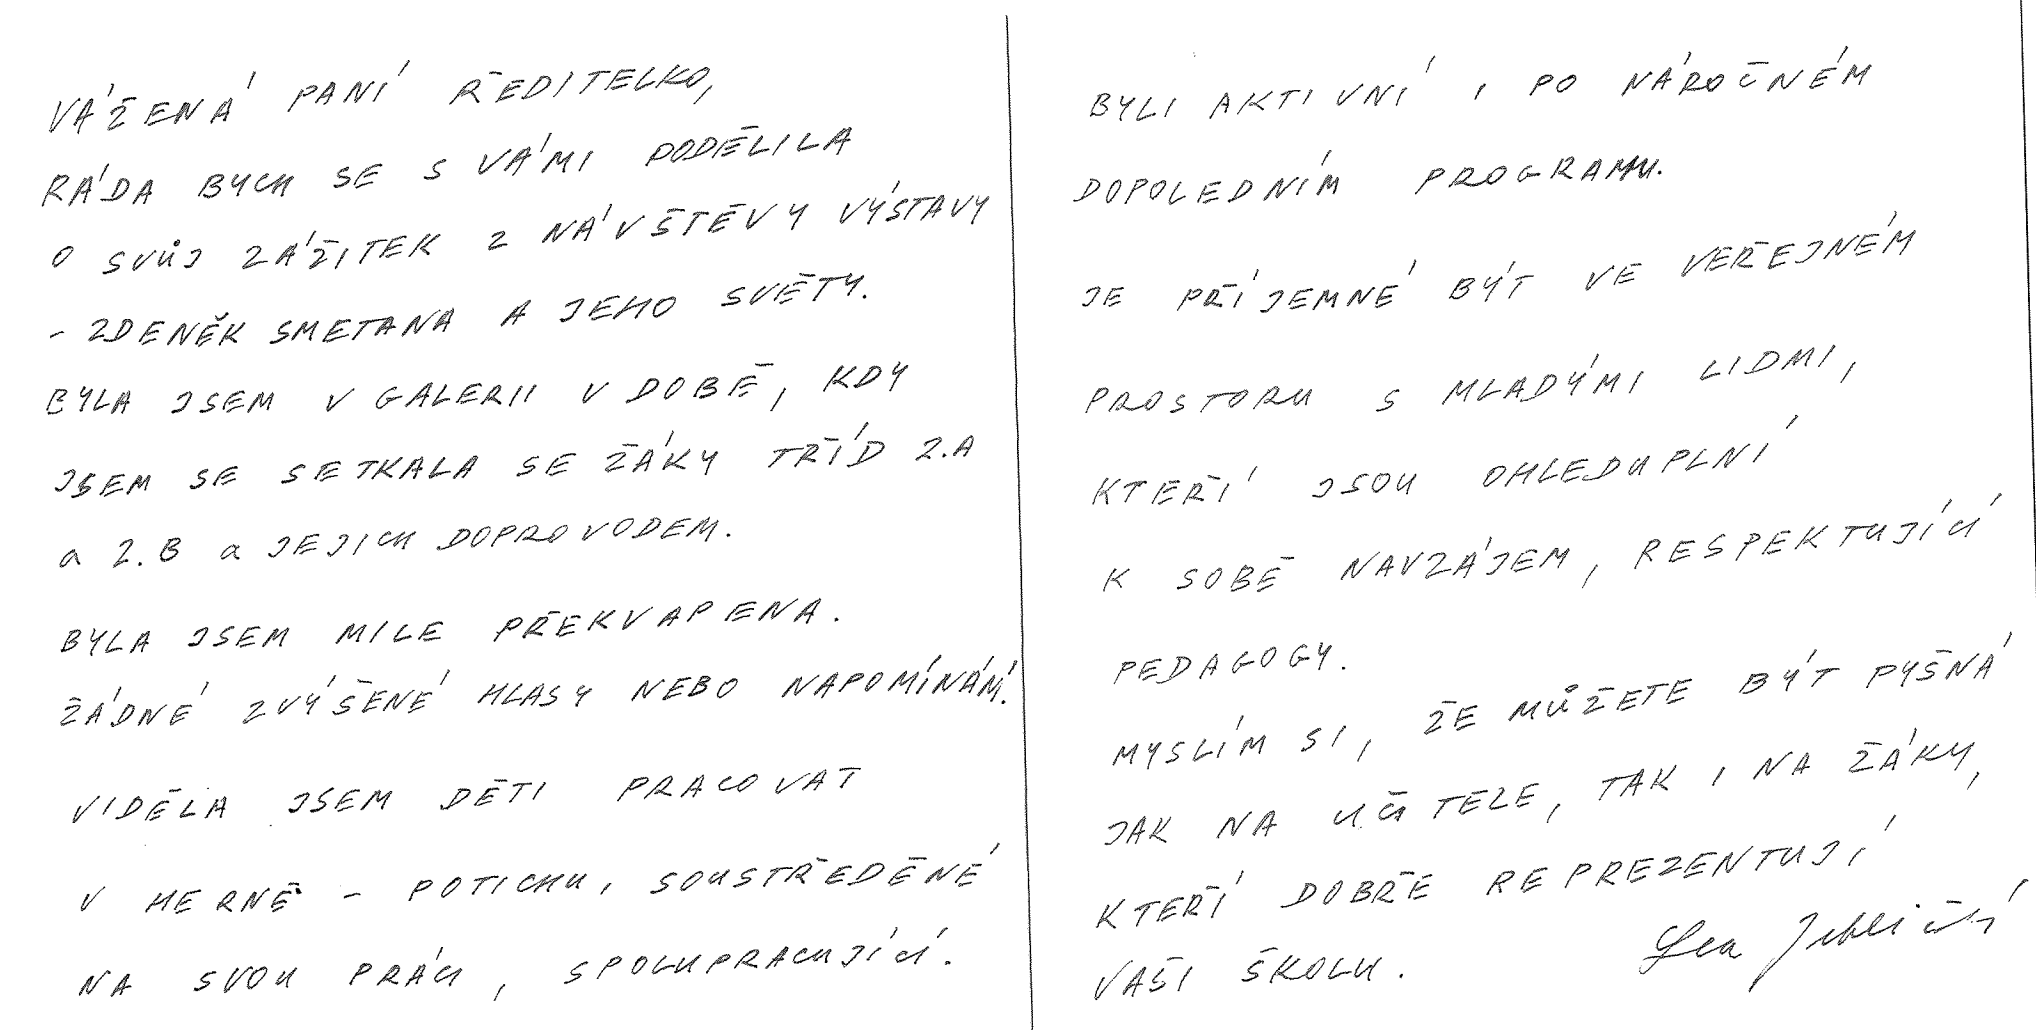 VÁŽENÁ PANÍ ŘEDITELKO,
RÁDA BYCH SE S VÁMI PODĚLILA
O SVŮJ ZÁŽITEK Z NÁVŠTĚVY VÝSTAVY
- ZDENĚK SMETANA A JEHO SVĚTY.
BYLA JSEM V GALERII V DOBĚ, KDY
JSEM SE SETKALA SE ŽÁKY TŘÍD 2.A
a 2.B a JEJICH DOPROVODEM.
BYLA JSEM MILE PŘEKVAPENA.
ŽÁDNÉ ZVÝŠENÉ HLASY NEBO NAPOMÍNÁNÍ.
VIDĚLA JSEM DĚTI PRACOVAT
V HERNĚ - POTICHU, SOUSTŘEDĚNÉ
NA SVOU PRÁCI, SPOLUPRACUJÍCÍ.
BYLI AKTIVNÍ I PO NÁROČNÉM
DOPOLEDNÍM PROGRAMU.
JE PŘÍJEMNÉ BÝT VE VEŘEJNÉM
PROSTORU S MLADÝMI LIDMI,
KTEŘÍ JSOU OHLEDUPLNÍ
K SOBĚ NAVZÁJEM, RESPEKTUJÍCÍ
PEDAGOGY.
MYSLÍM SI, ŽE MŮŽETE BÝT PYŠNÁ
JAK NA UČITELE, TAK I NA ŽÁKY,
KTEŘÍ DOBŘE REPREZENTUJÍ
VAŠI ŠKOLU.